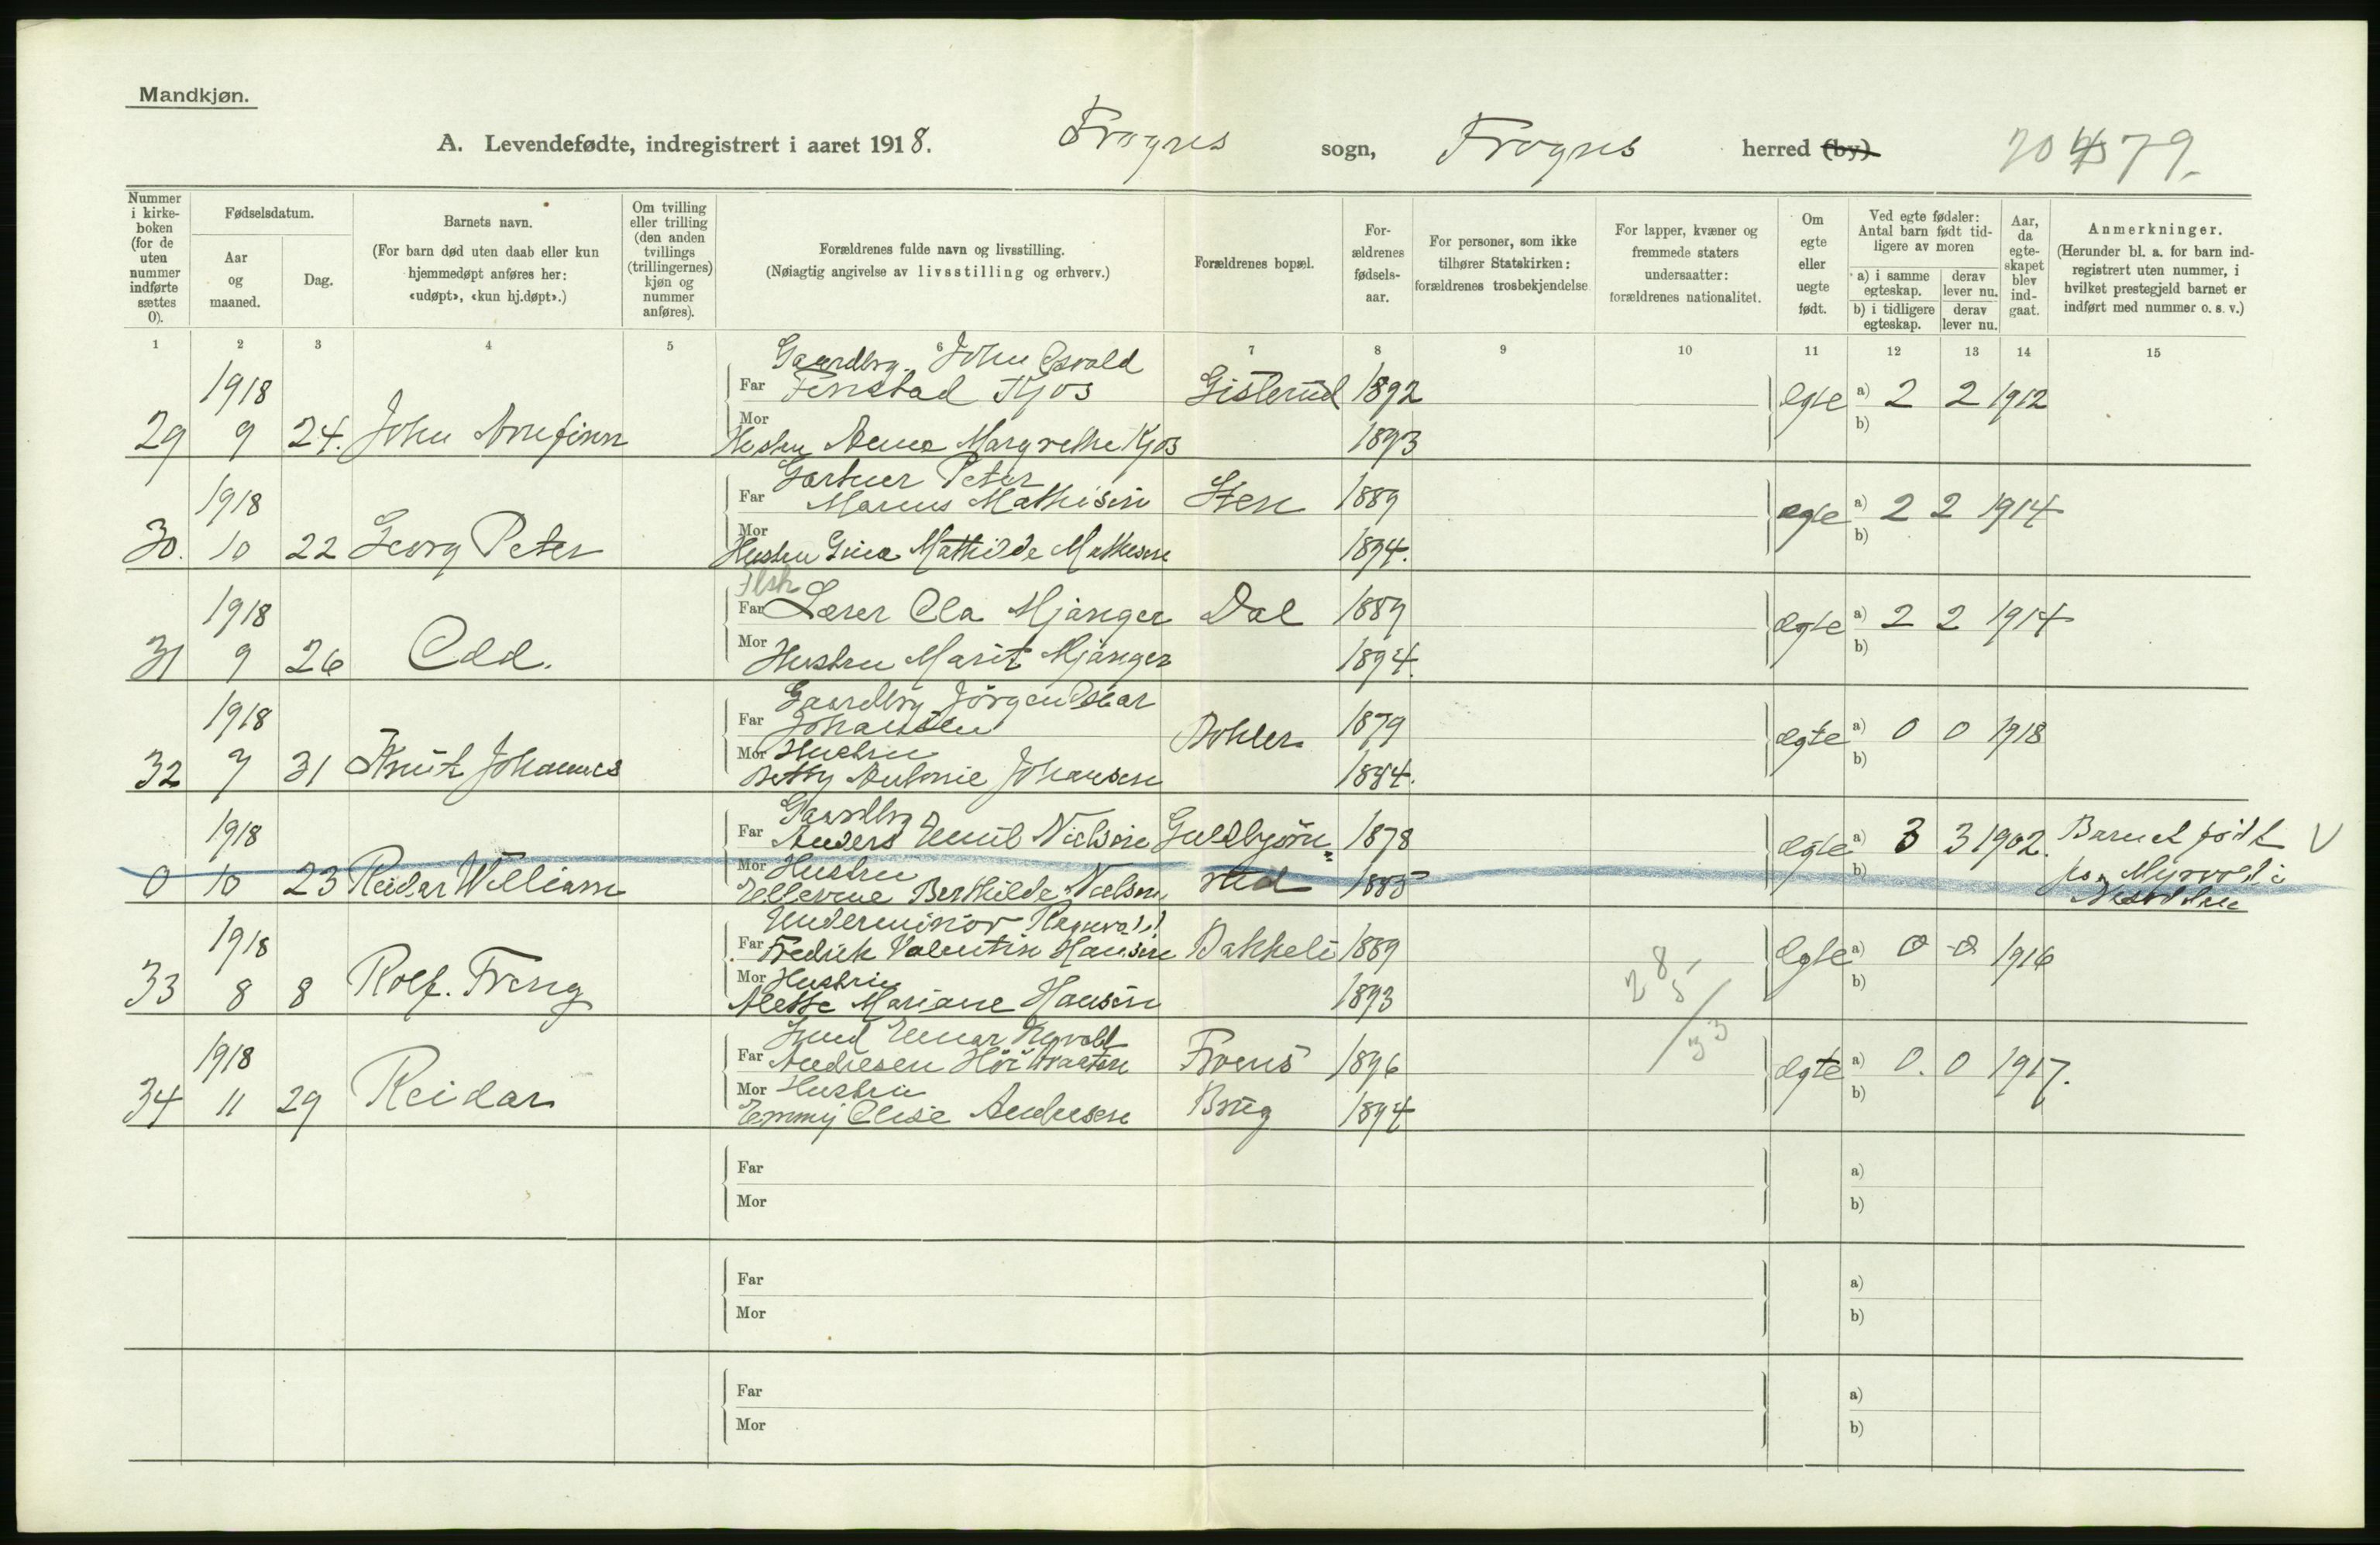 Mandkjøn.
A. Levendefødte, indregistrert i aaret 1918. Frogns sogn, Frogns herred (by) 79.
Nummer i kirkeboken (for de uten nummer indførte sættes 0).
Fødselsdatum.
Aar og maaned.
Dag.
Barnets navn.
(For barn død uten daab eller kun hjemmedøpt anføres her: «udøpt», «kun hj.døpt».)
Om tvilling eller trilling (den anden tvillings (trillingernes) kjøn og nummer anføres).
Forældrenes fulde navn og livsstilling.
(Nøiagtig angivelse av livsstilling og erhverv.)
Forældrenes bopæl.
Forældrenes fødselsaar.
For personer, som ikke tilhører Statskirken: forældrenes trosbekjendelse
For lapper, kvæner og fremmede staters undersaatter: forældrenes nationalitet.
Om egte eller uegte født.
Ved egte fødsler: Antal barn født tidligere av moren
a) i samme egteskap.
derav lever nu.
b) i tidligere egteskap.
derav lever nu.
Aar, da egteskapet blev indgaat.
Anmerkninger.
(Herunder bl. a. for barn indregistrert uten nummer, i hvilket prestegjeld barnet er indført med nummer o. s. v.)
1 2 3 4 5 6 7 8 9 10 11 12 13 14 15
Gaardbrg. John Osvald
1918 Far Finstad Kjos Gislerud 1892 Egte a) 2 2 1912
29 9 24. John Arnfinn Mor Hustru Anna Margrethe Kjos 1893 b)
Gartner Peter
1918 Far Marius Mathisen Sten 1889 egte a) 2 2 1914
30. 10 22 Georg Peter Mor Hustru Gina Mathilde Mathisen 1894. b)
1918 Far Lærer Ola Mjånger Dal 1889 Ægte a) 2 2 1914
31 9 26 Odd. Mor Hustru Marit Mjånger 1894. b)
Gaardbrg Jörgen Oscar
1918 Far Johansen Bohler 1879 ægte a) 0 0 1918
Mor Hustru
32 7 31 Knut Johannes Betsy Antonie Johansen 1884. b)
Gaardbrg
1918 Far Anders Emil Nielsen Guldbjörn= 1878 Ægte a) 3 3 1902. Barnet født V
0 10 23 Reidar William Mor Hustru sted 1885 b) paa Myrvold i
Berthilde Nielsen Nesodden
Underminör Ragnvald
1918 Far Fredrik Valentin Hansen Bakkeli 1889 Egte a) 0 0 1916
Mor Hustru
33 8 8 Rolf. Freng Alette Mariane Hansen 1893 b)
28 5
33
1918 Far Andresen Frens 1896 Ægte a) 0. 0 1917.
Mor Hustru
34 11 29 Reidar Emmy Elise Andresen Brug 1894 b)
Far a)
Mor b)
Far a)
Mor b)
Far a)
Mor b)